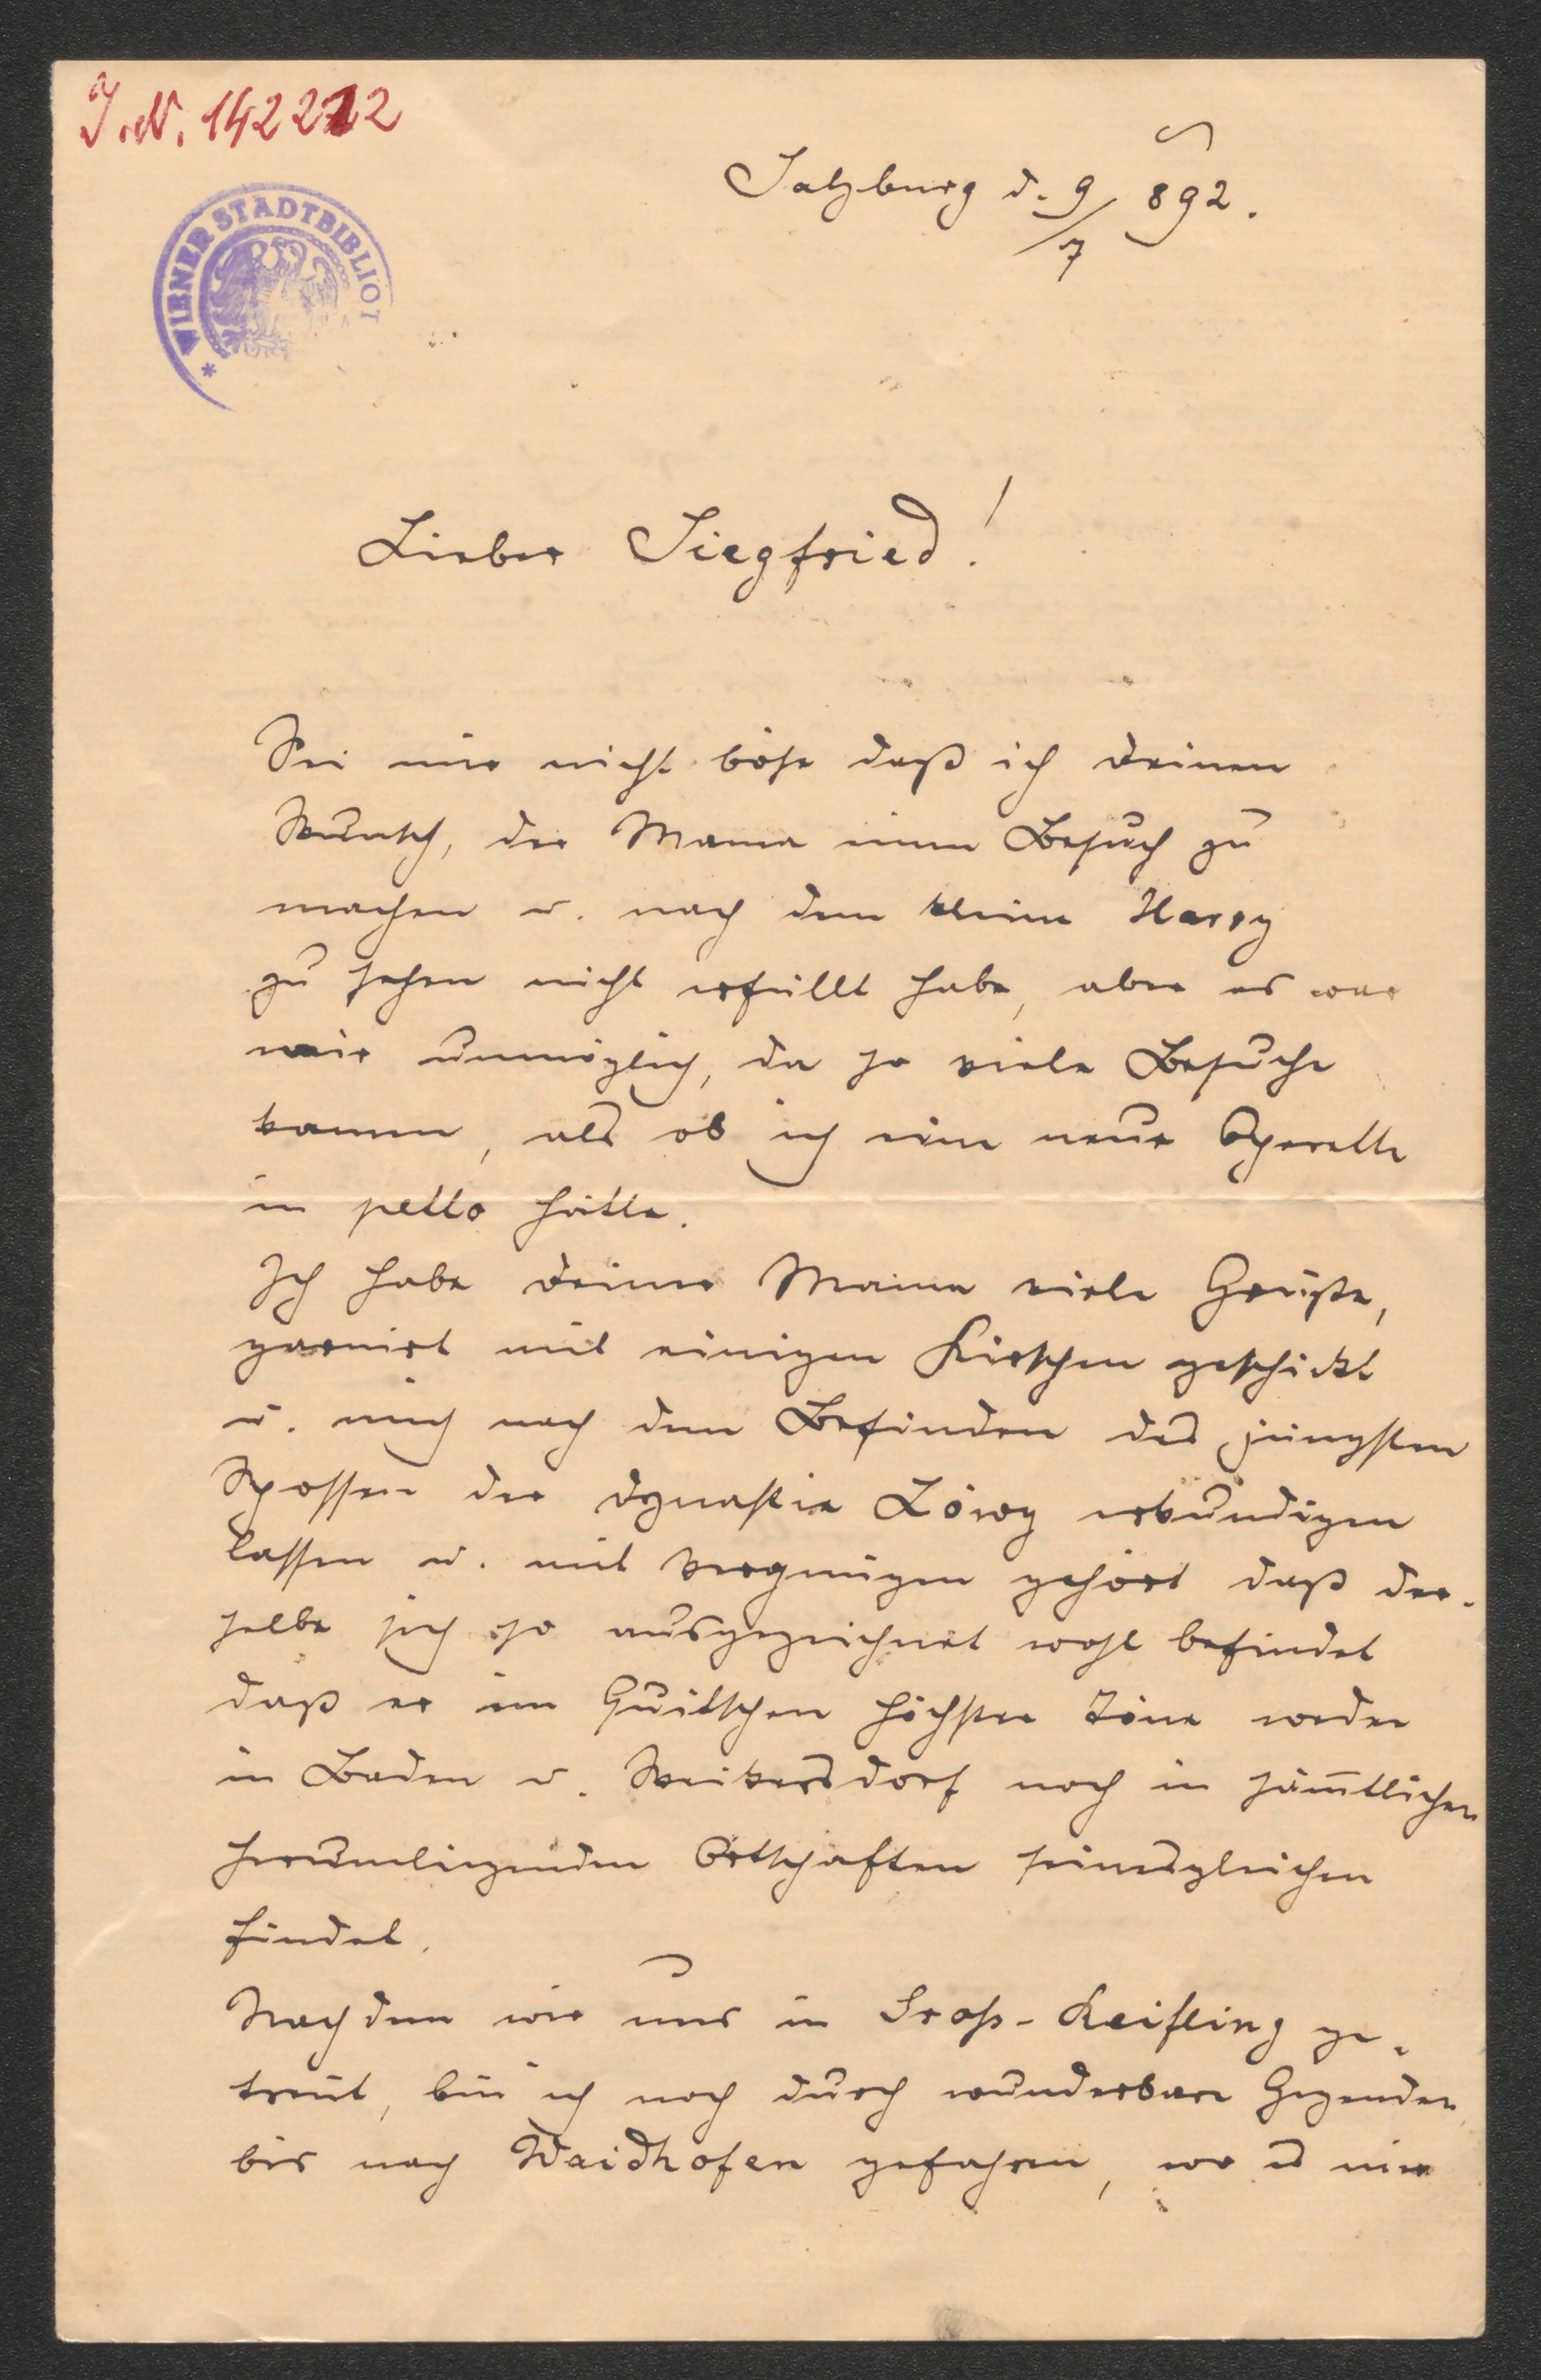 J.N. 142212
WIENER STADTBIBLIOT
Salzburg d. 9/7 892.
Lieber Siegfried!
Sei mir nicht böse daß ich Deinen
Wunsch, der Mama einen Besuch zu
machen u. nach dem kleine Harry
zu sehen nicht erfüllt habe, aber es war
mir unmöglich, da so viele Besuche
kamen, als ob ich eine neue Operette
in petto hätte.
Ich habe Deiner Mama viele Grüße,
garnirt mit einigen Kirschen geschickt
u. mich nach dem Befinden des jüngsten
Sprossen der Dynastie Löwy erkundigen
lassen u. mit Vergnügen gehört daß der-
selbe sich so ausgezeichnet wohl befindet
daß er im Quitschen höchster Töne weder
in Baden u. Weikersdorf noch in sämtlichen
herumliegenden Ortschaften seinesgleichen
findet.
Nachdem wir uns in Gross-Reifling ge-
trent, bin ich noch durch wunderbare Gegenden
bis nach Waidhofen gefahren, wo es mir